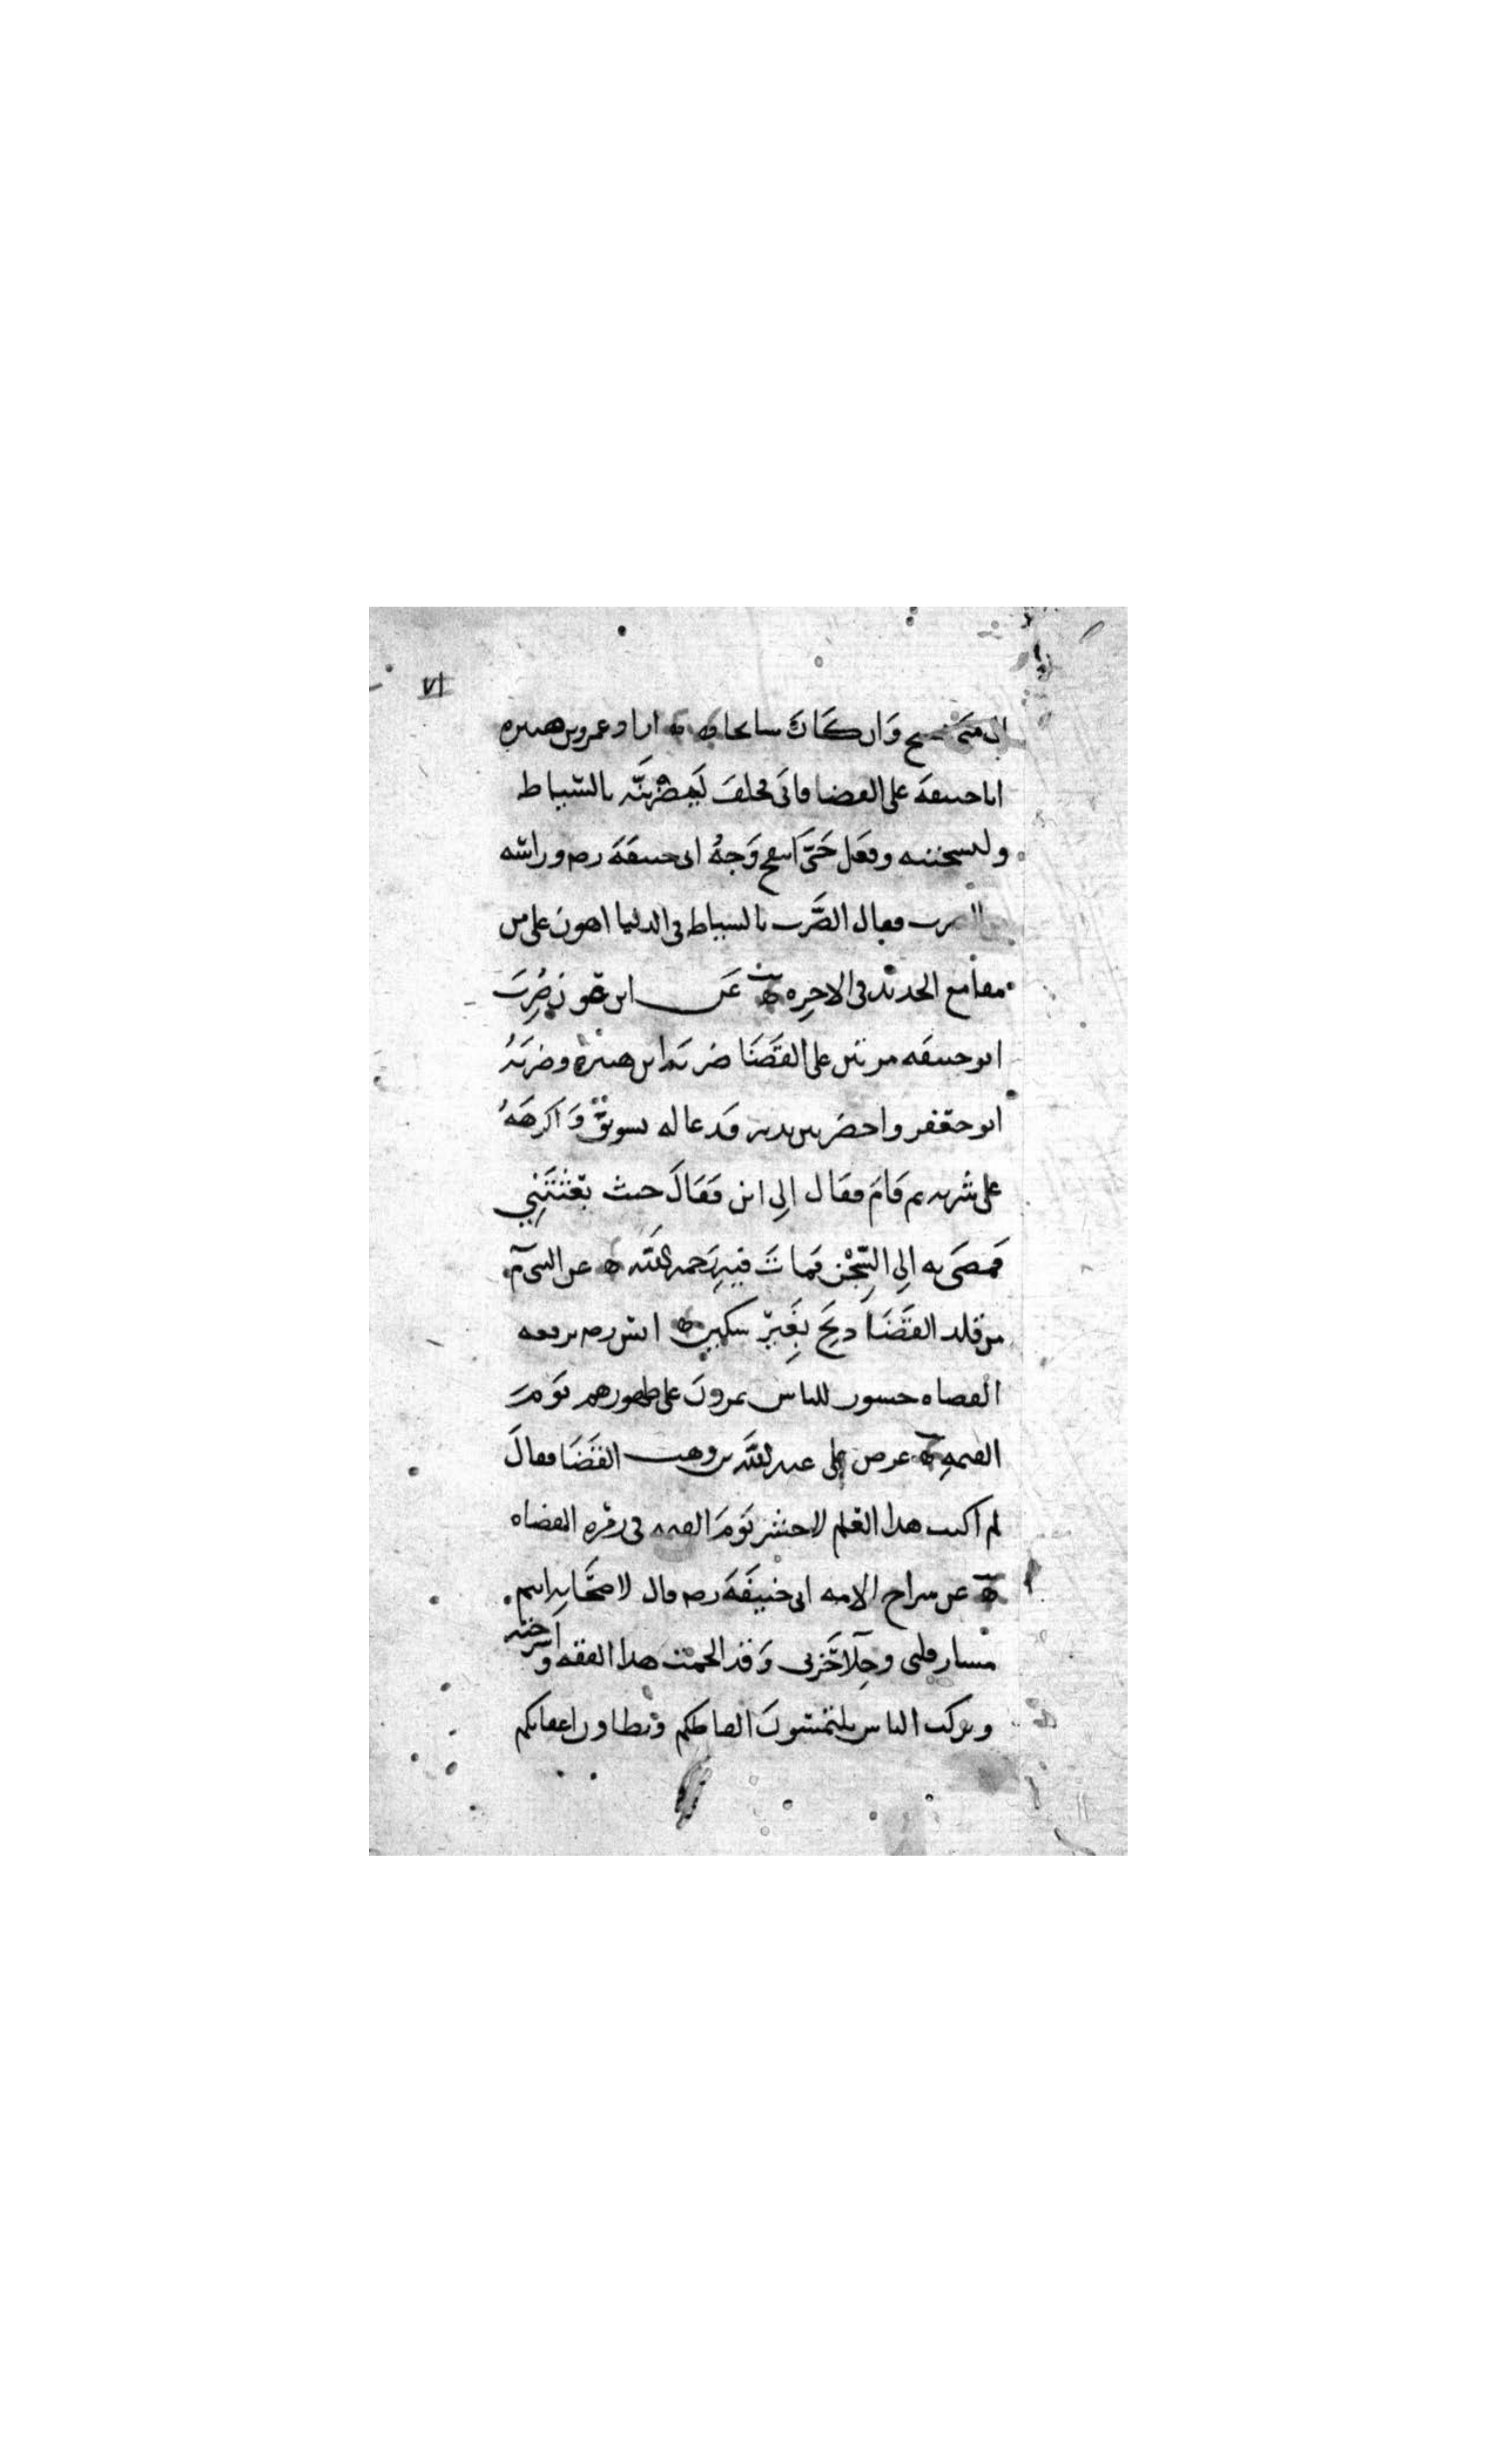 ٧١
ان متى يسبح وان كان سابحا اراد عمرو بن هبيره
ابا حنيفة على القضا فابى فحلف ليضربنّه بالسّياط
وليسجننه وفعل حَتّى انتفخ وَجهُ ابى حنيفَةَ رحه وراسه
من الضرب فقال الضَّرب بالسياط فى الدنيا اهون على من
مقامع الحديد فى الاخِره عَن ابن عون ضُرِبَ
ابو حنيفه مرتين على القَضَا ضربه ابن هبيره وضربَهُ
ابو جعفر واحضر بين يديه فدعا له بسويق وَاكرهَهُ
على شربه ثم قَامَ فقال الِى اين فقَالَ حيث بعَثتَنِي
فمضَى به الِى السِّجْن فماتَ فيهِ رَحمه اللّه عن النبى م
من قلد القَضَا ذبِحَ بِغَيرِ سكين انس رحه يرفعه
القضاه جسور للناس يمرونَ على ظهورهم يَومَ
القيمهِ عرض على عبد اللّه بن وهب القَضَا فقالَ
لم اكتب هذا العلم لاحشر يَومَ القيمه فى زمره القضاه
عن سراج الامه ابى حَنيفَةَ رحه قال لاصحَابه انتم
مسار قلبى وجِلآ حُزنى وَقد الجمت هذا الفقه واسرجته
وتركت الناس يلتمسونَ الفاظكم وتطاون اعقابكم